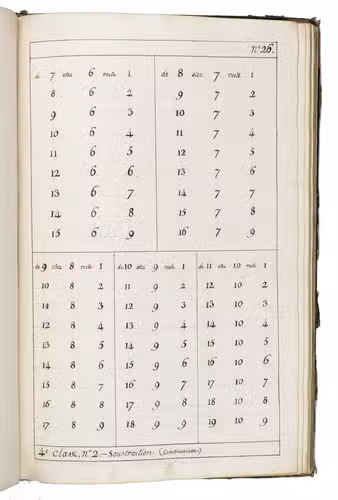 Nº 26.
de 7 otez 6 reste 1
8 6 2
9 6 3
10 6 4
11 6 5
12 6 6
13 6 7
14 6 8
15 6 9
de 8 otez 7 reste 1
9 7 2
10 7 3
11 7 4
12 7 5
13 7 6
14 7 7
15 7 8
16 7 9
de 9 otez 8 reste 1
10 8 2
11 8 3
12 8 4
13 8 5
14 8 6
15 8 7
16 8 8
17 8 9
de 10 otez 9 reste 1
11 9 2
12 9 3
13 9 4
14 9 5
15 9 6
16 9 7
17 9 8
18 9 9
de 11 otez 10 reste 1
12 10 2
13 10 3
14 10 4
15 10 5
16 10 6
17 10 7
18 10 8
19 10 9
4e Classe, Nº 2 — Soustraction. (Continuation.)